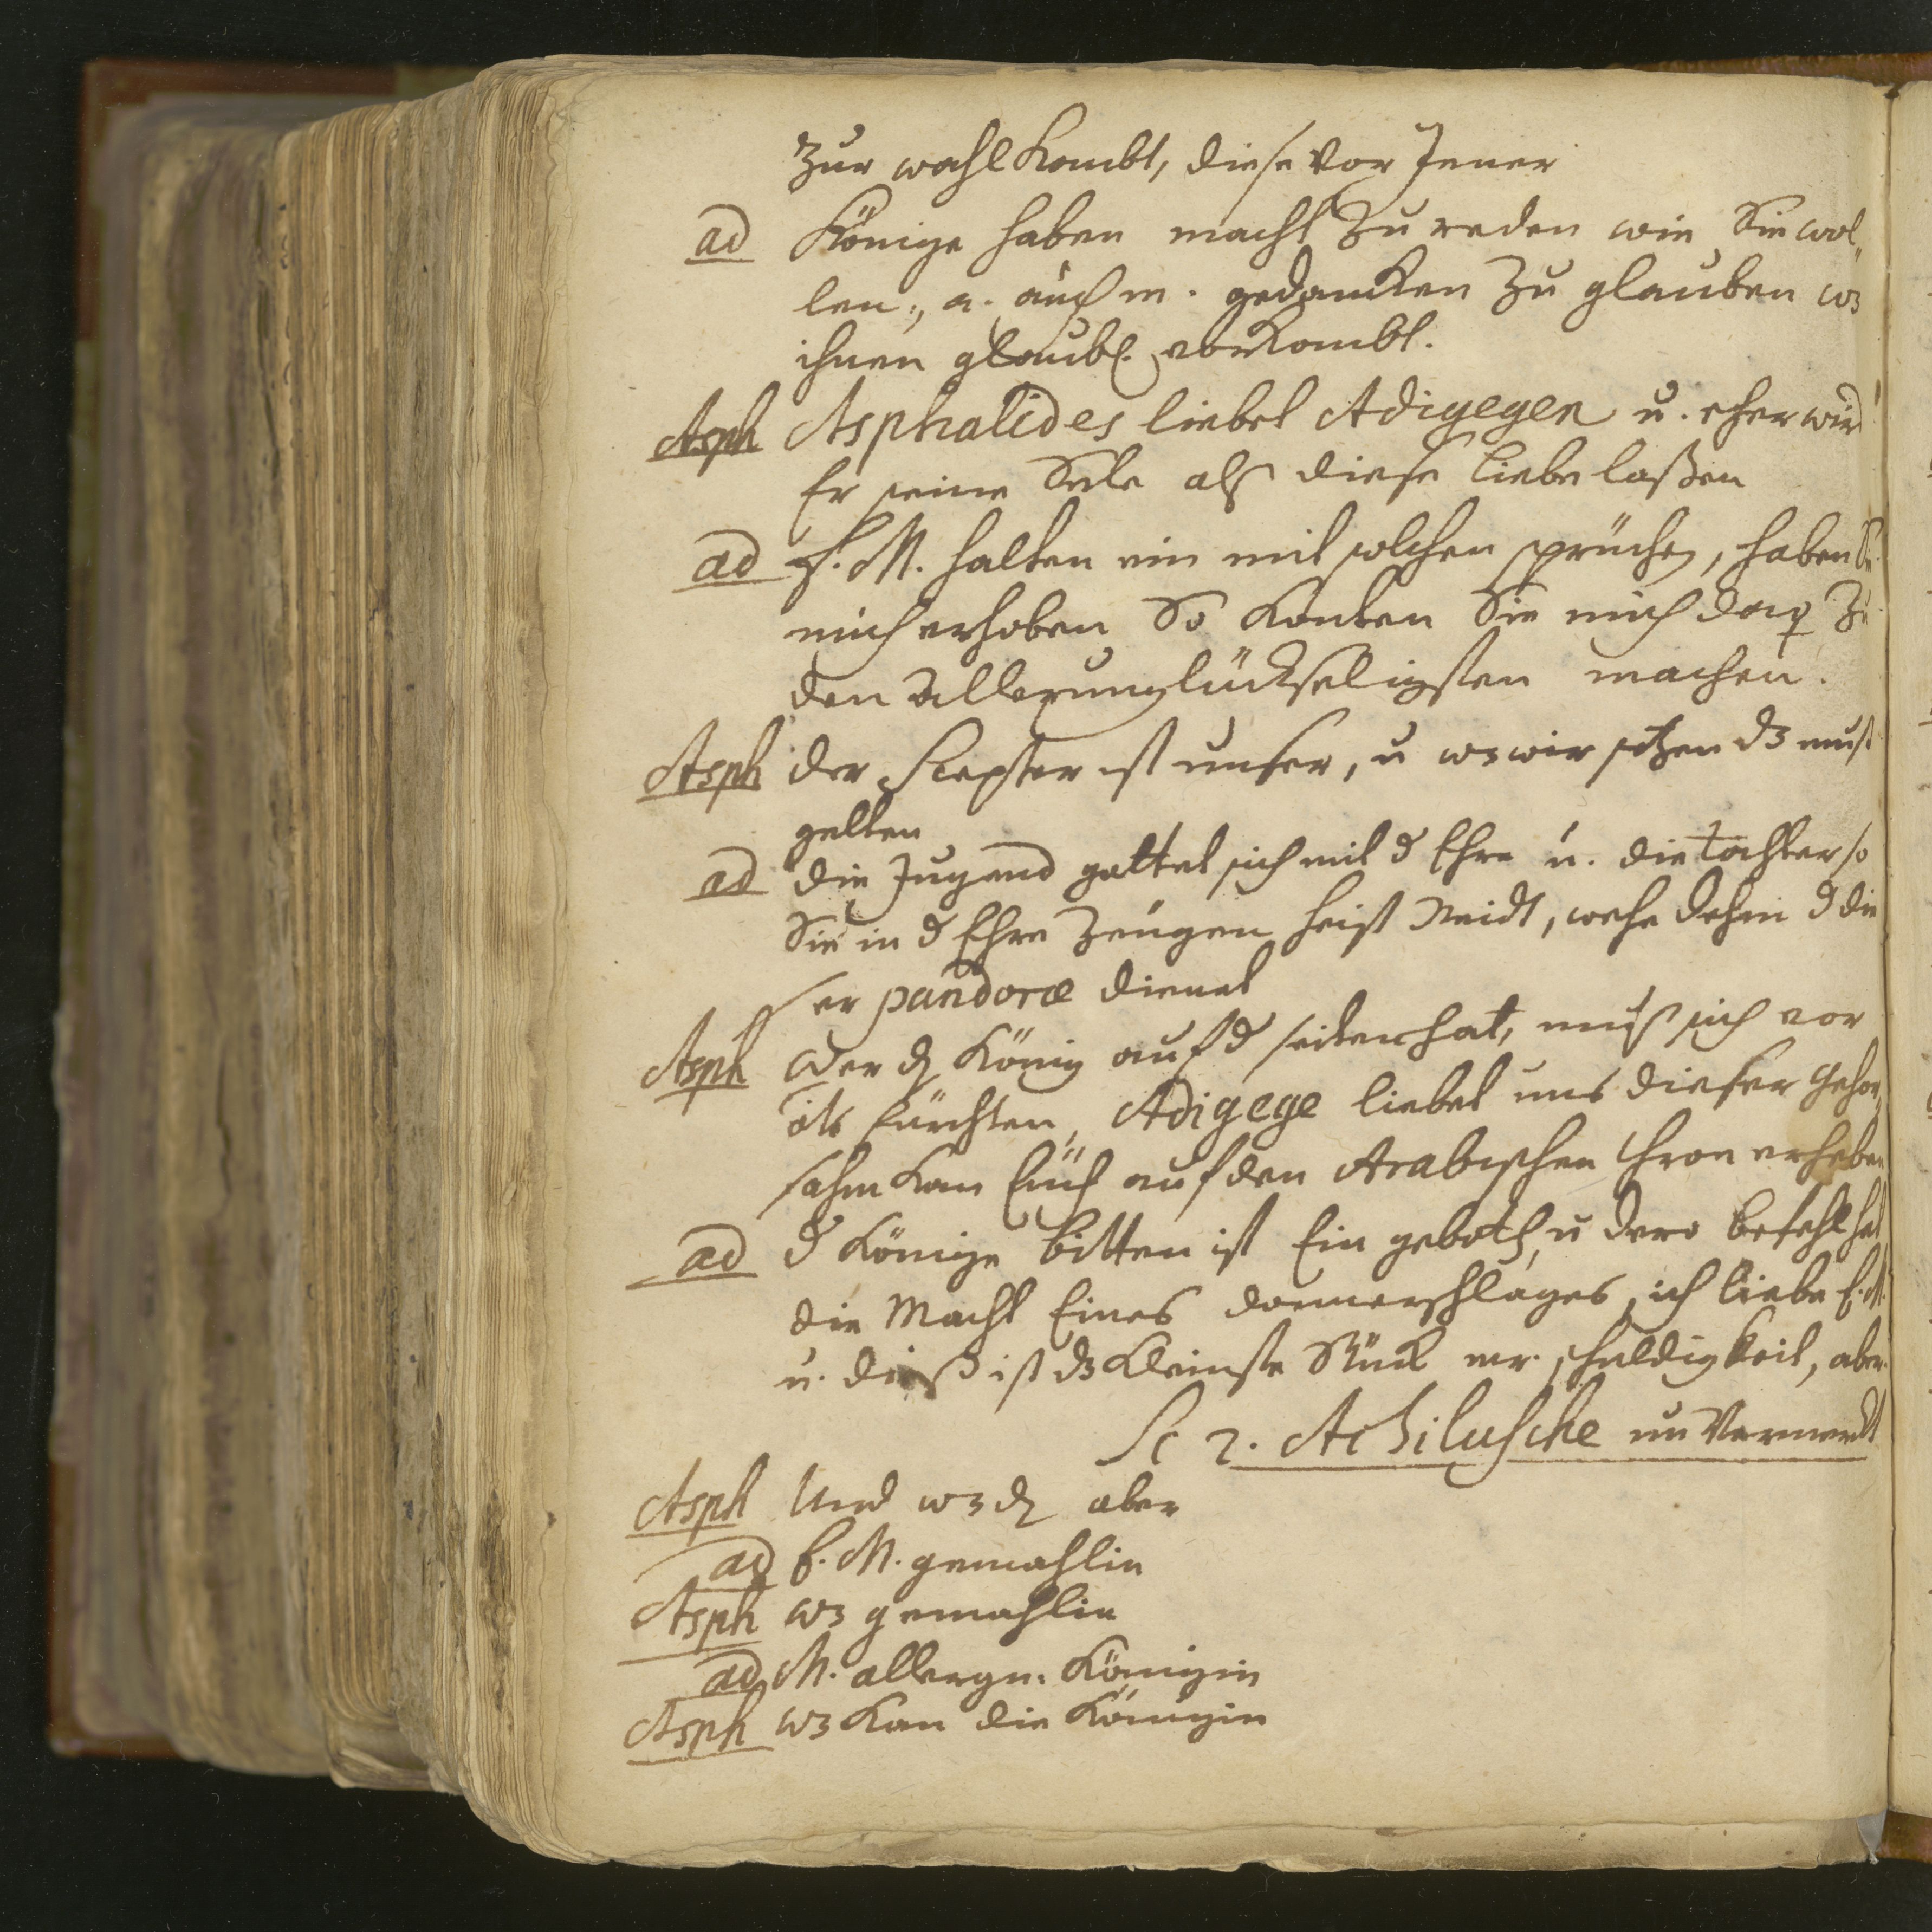 Zur wahl kombt, diese vor Jener
ad Könige haben macht zu reden wie Sie wol„
len, a. auch m. gedancken zu glauben wz
ihnen glaubl. vorkombt.
Asph Asphalides liebet Adigegen u. eher wird
Er seine Sele alß diese liebe laßen
ad E. M. halten ein mit solchen sprüchen, haben Sie
mich erhoben So konten Sie mich doch zu
den allerunglückseligsten machen.
Asph der Scepter ist unser, u wz wir setzen dz muß
gelten
ad die Jugend gattet sich mit d Ehre u. die tochter so
Sie in d Ehre zeugen heist Neidt, wehe dehm d die
ser pandoræ dienet
Asph Wer dn König auf d seiten hat, muß sich vor
nits fürchten, Adigege liebet uns dieser gehor„
sahm kan Euch auf den Arabischen thron erheben
ad d Könige bitten ist Ein geboth, u dero befehl hat
die Macht Eines donnerschlages, ich liebe E. M.
u. dieß ist dz kleinste Stück mr. schuldigkeit, aber
Sc 2. Achilusche un Vermerckt
Asph Und wz dn aber
ad E. M. gemahlin
Asph wz gemahlin
ad M. allergn. Königin
Asph wz kan die Königin